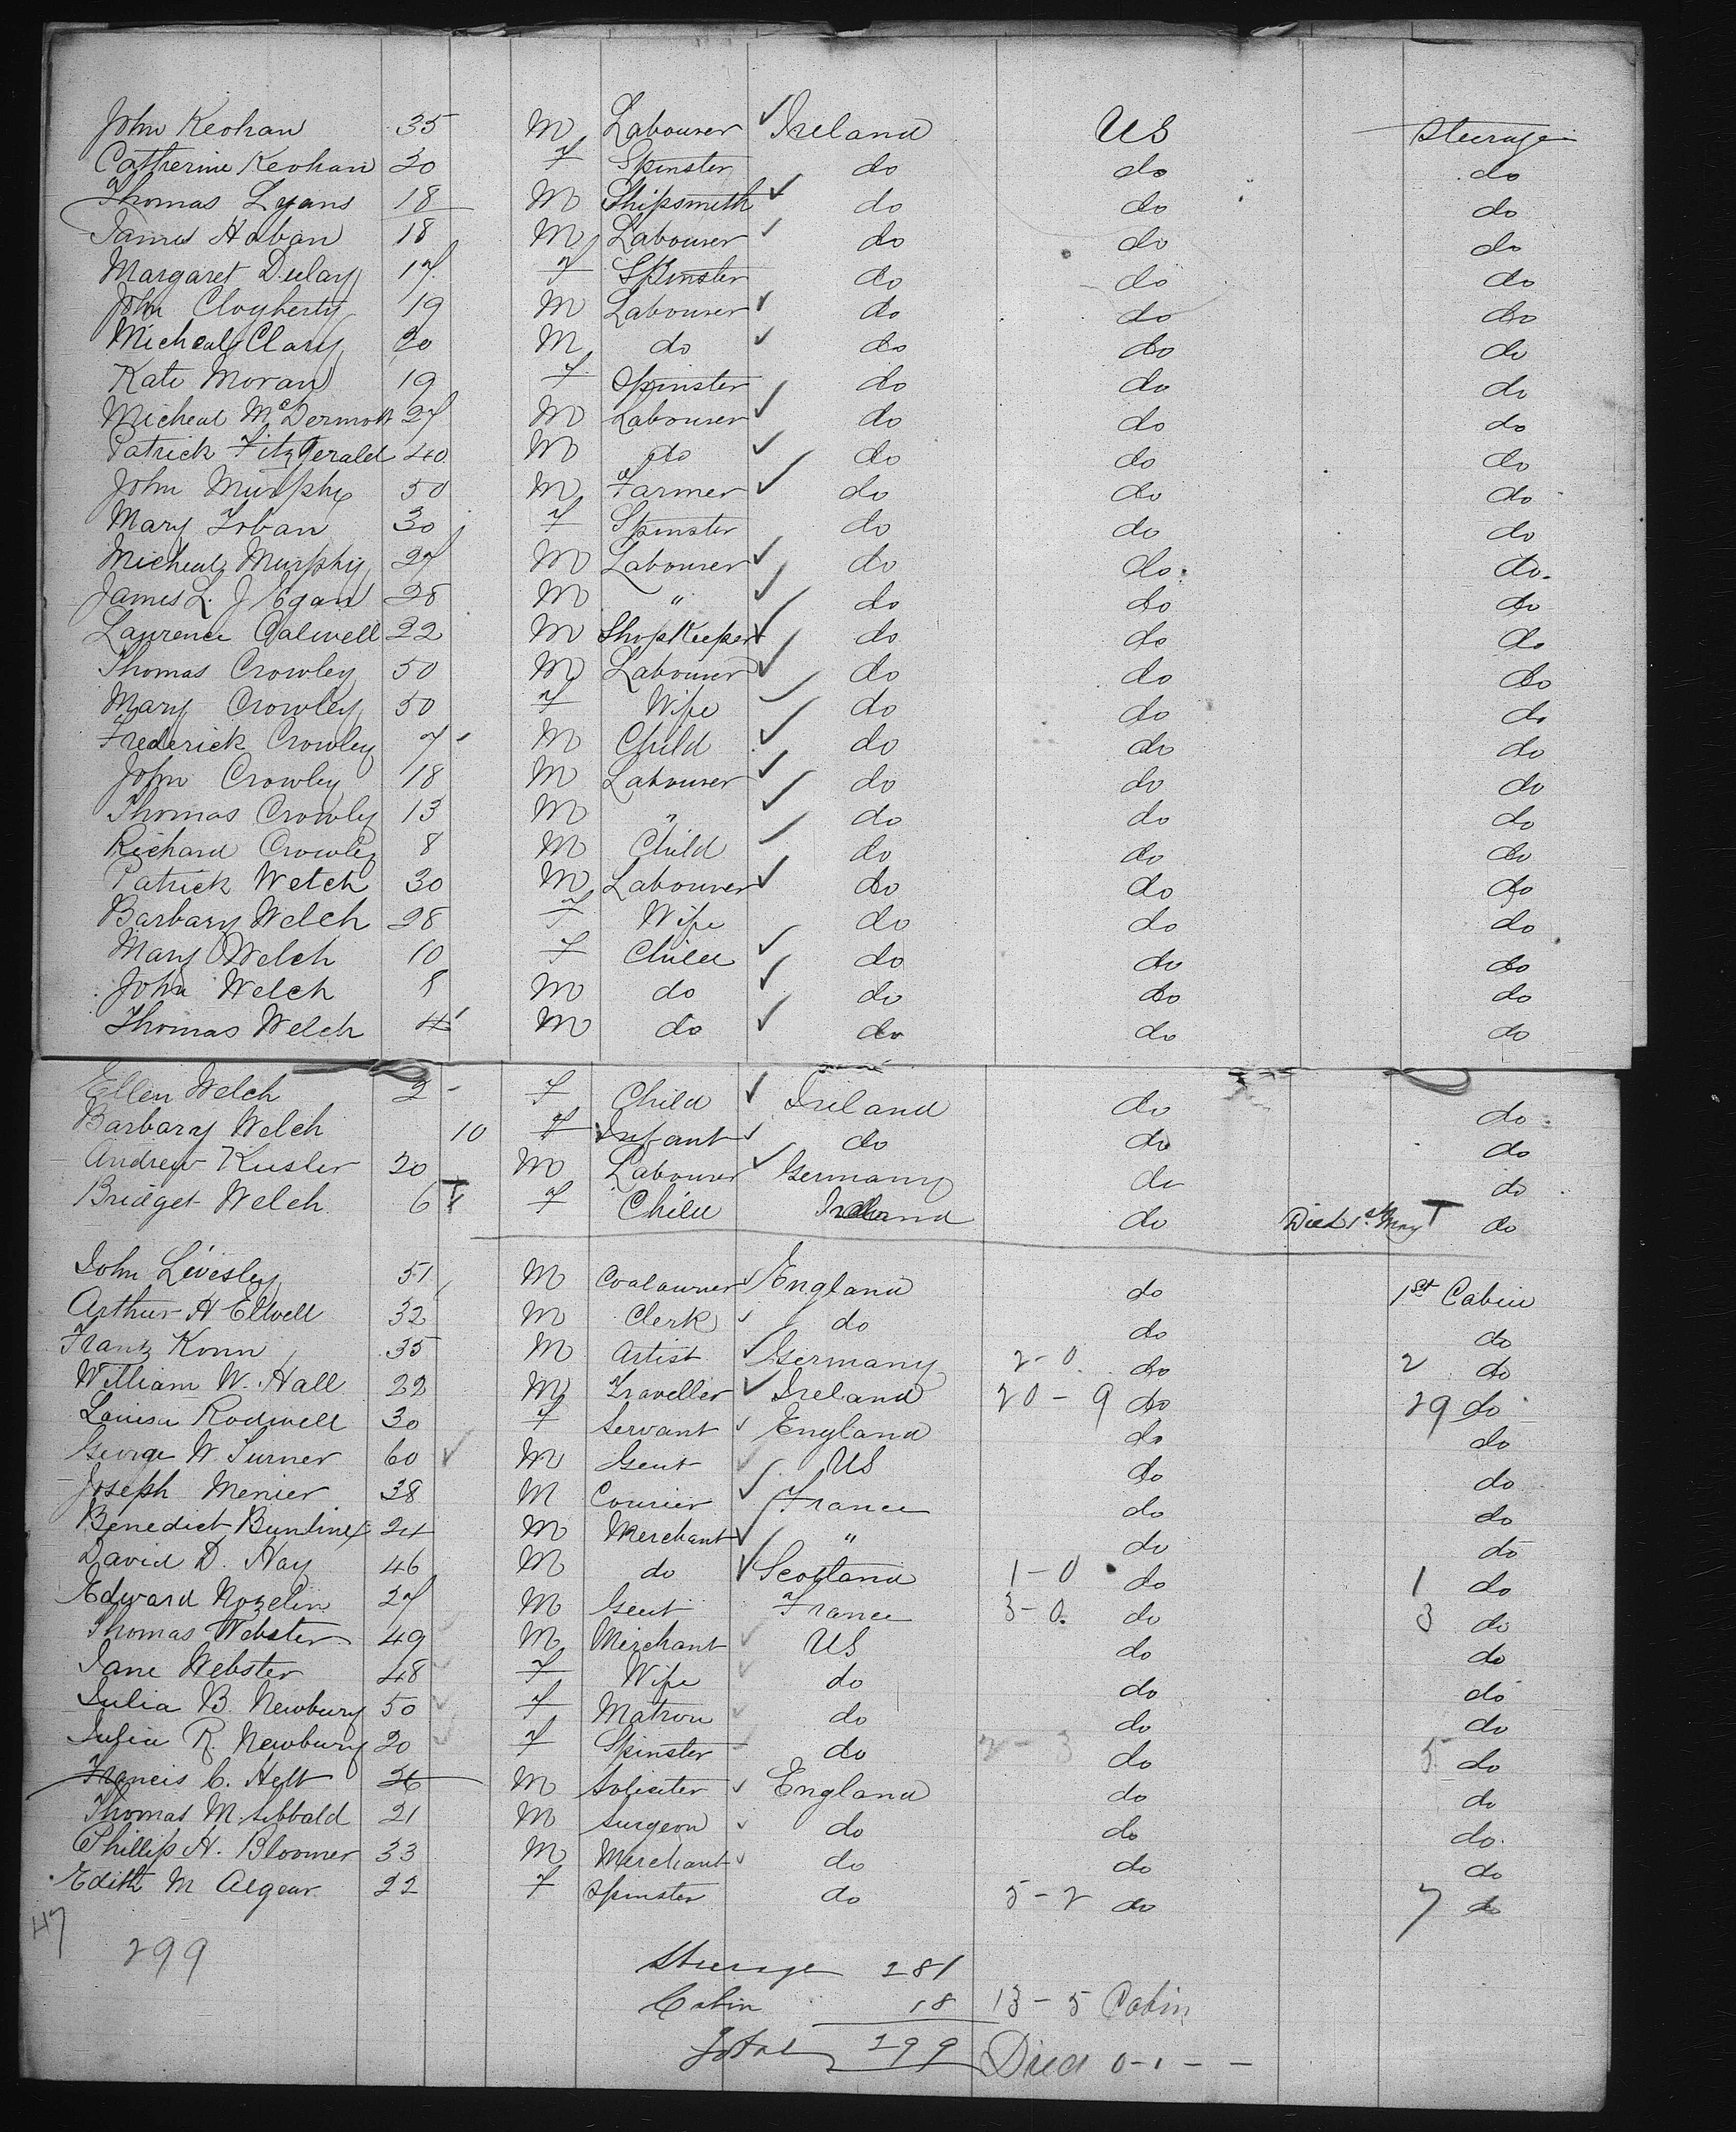 John Keohan 35 M Labourer Ireland US Steerage
Catherine Keohan 30 F Spinster do do do
Thomas Lyans 18 M Shipsmith do do do
James Hoban 18 M Labourer do do do
Margaret Dulay 17 F Spinster do do do
John Cloyherty 19 M Labourer do do do
Micheal Clary 20 M do do do do
Kate Moran 19 F Spinster do do do
Micheal McDermott 27 M Labourer do do do
Patrick FitzGerald 40 M do do do do
John Murphy 50 M Farmer do do do
Mary Toban 30 F Spinster do do do
Micheal Murphy 27 M Labourer do do do
James L. J Egan 28 M " do do do
Laurence Calwell 22 M ShopKeeper do do do
Thomas Crowley 50 M Labourer do do do
Mary Crowley 50 F Wife do do do
Frederick Crowley 7 M Child do do do
John Crowley 18 M Labourer do do do
Thomas Crowley 13 M " do do do
Richard Crowley 8 M Child do do do
Patrick Welch 30 M Labourer do do do
Barbary Welch 28 F Wife do do do
Mary Welch 10 F Child do do do
John Welch 8 M do do do do
Thomas Welch 4 M do do do do
Ellen Welch 2 F Child Ireland do do
Barbary Welch 10 F Infant do do do
Andrew Kusler 20 M Labourer Germany do do
Bridget Welch 6 T F Child Ireland do Died 1st May T do
John Livesley 51 M Coalowner England do 1st Cabin
Arthur H Ellwell 32 M Clerk do do do
Frantz Konn 35 M Artist Germany 2-0 do 2 do
William W. Hall 22 M Traveller Ireland 20-9 do 29 do
Louisa Rodwell 30 F Servant England do do
George W Turner 60 M Gent US do do
Joseph Menier 38 M Courier France do do
Benedict Buntinx 24 M Merchant " do do
David D. Hay 46 M do Scotland 1-0 do 1 do
Edward Nozelin 27 M Gent France 3-0 do 3 do
Thomas Webster 49 M Merchant US do do
Jane Webster 48 F Wife do do do
Julia B. Newbury 50 F Matron do do do
Julia R. Newbury 20 F Spinster do 2-3 do 5 do
Francis C. Helt 26 M Soliciter England do do
Thomas M. Sibbald 21 M Surgeon do do do
Phillip H. Bloomer 33 M Merchant do do do
Edith M Algear 22 F Spinster do 5-2 do 7 do
47
299
Steerage 281
Cabin 18 13-5 Cabin
Total 299 Died 0-1--